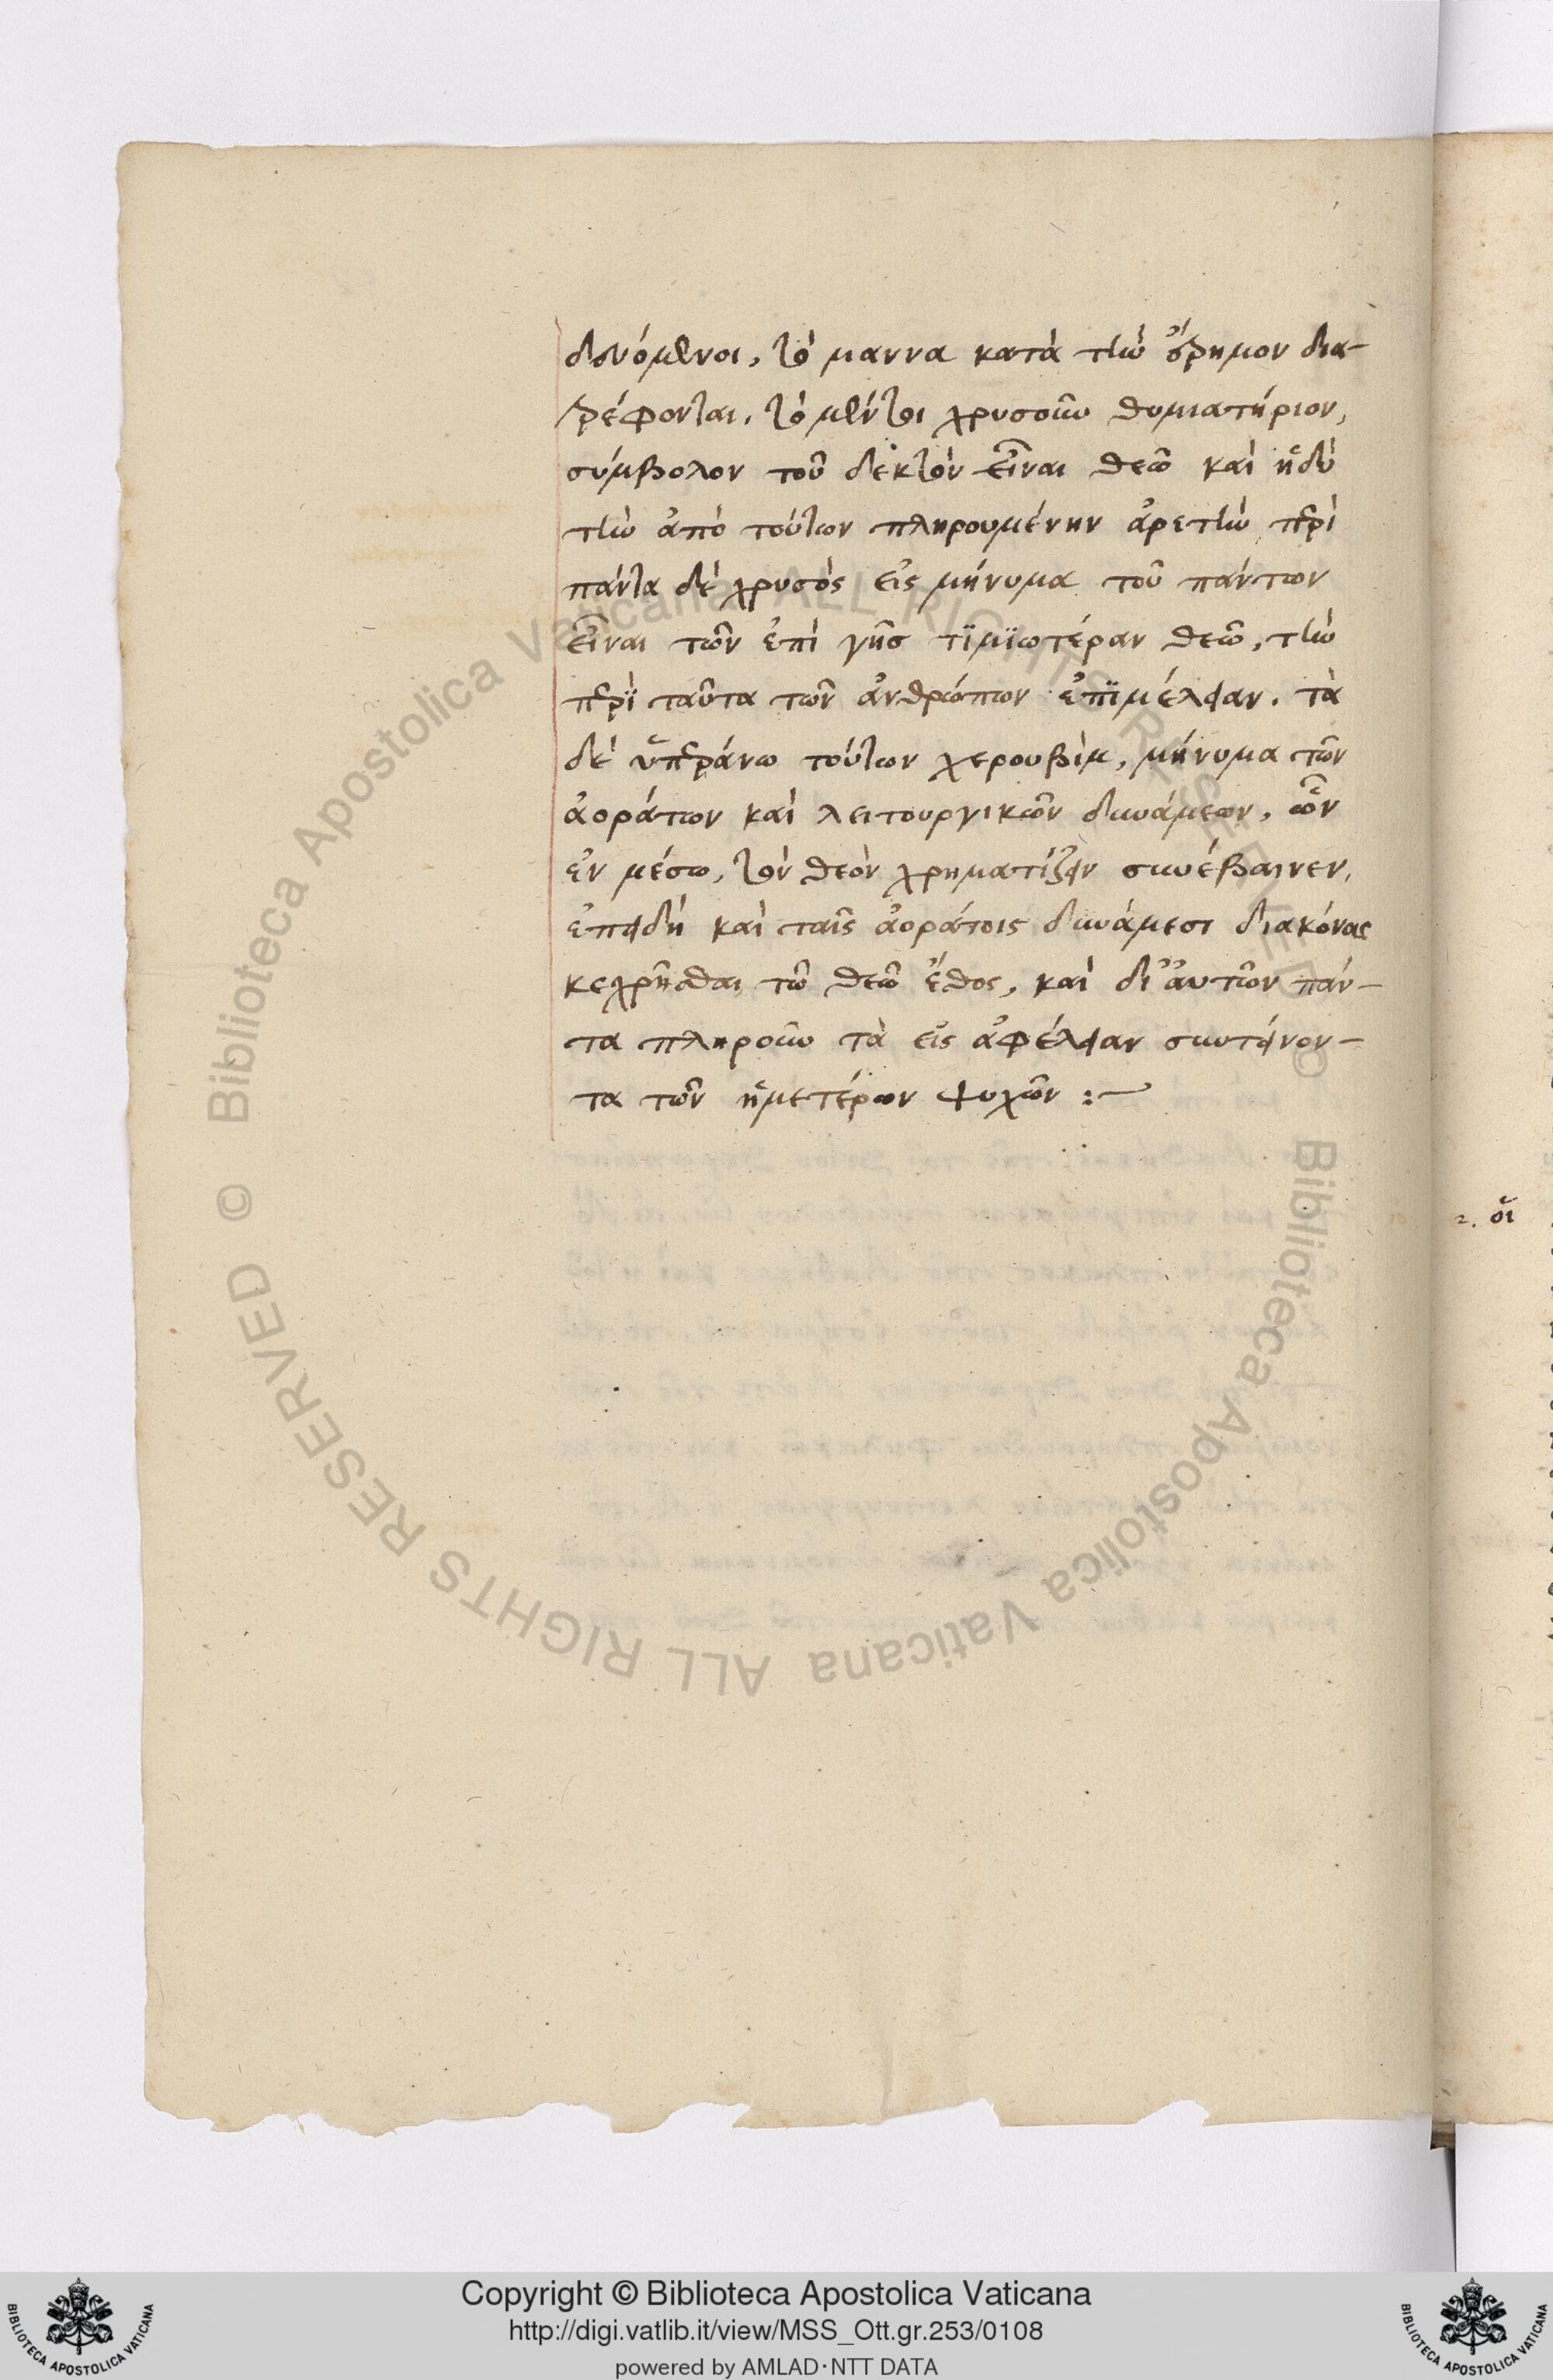 δευόμενοι, τὸ μαννα κατὰ τὴν ἔρημον δια-
τρέφονται. τὸ μέντοι χρυσοῦν θυμιατήριον,
σύμβολον τοῦ δεκτὸν εἶναι θεῶ καὶ ἡδὺ
τὴν ἀπὸ τούτων πληρουμένην ἀρετὴν περὶ
πάντα δὲ χρυσὸς εἰς μήνυμα τοῦ πάντων
εἶναι τῶν ἐπὶ γῆς τϊμϊωτέραν θεῶ, τὴν
περϊ ταῦτα τῶν ἀνθρώπων ἐπϊμέλειαν. τὰ
δὲ ὑπεράνω τούτων χερουβὶμ, μήνυμα τῶν
ἀοράτων καὶ λειτουργικῶν δυνάμεων, ὧν
ἐν μέσω, τὸν θεὸν χρηματίζειν συνέβαινεν,
ἐπειδὴ καὶ ταῖς ἀοράτοις δυνάμεσι διακόνοις
κεχρῆσθαι τῶ θεῶ ἔθος, καὶ δι' αὐτῶν πάν-
τα πληροῦν τὰ εἰς ὠφέλειαν συντείνον-
τα τῶν ἡμετέρων ψυχῶν :~
2. οἱ
© Biblioteca Apostolica Vaticana ALL RIGHTS RESERVED
© Biblioteca Apostolica Vaticana ALL RIGHTS RESERVED
Copyright © Biblioteca Apostolica Vaticana
http://digi.vatlib.it/view/MSS_Ott.gr.253/0108
powered by AMLAD·NTT DATA
BIBLIOTECA APOSTOLICA VATICANA
BIBLIOTECA APOSTOLICA VATICANA